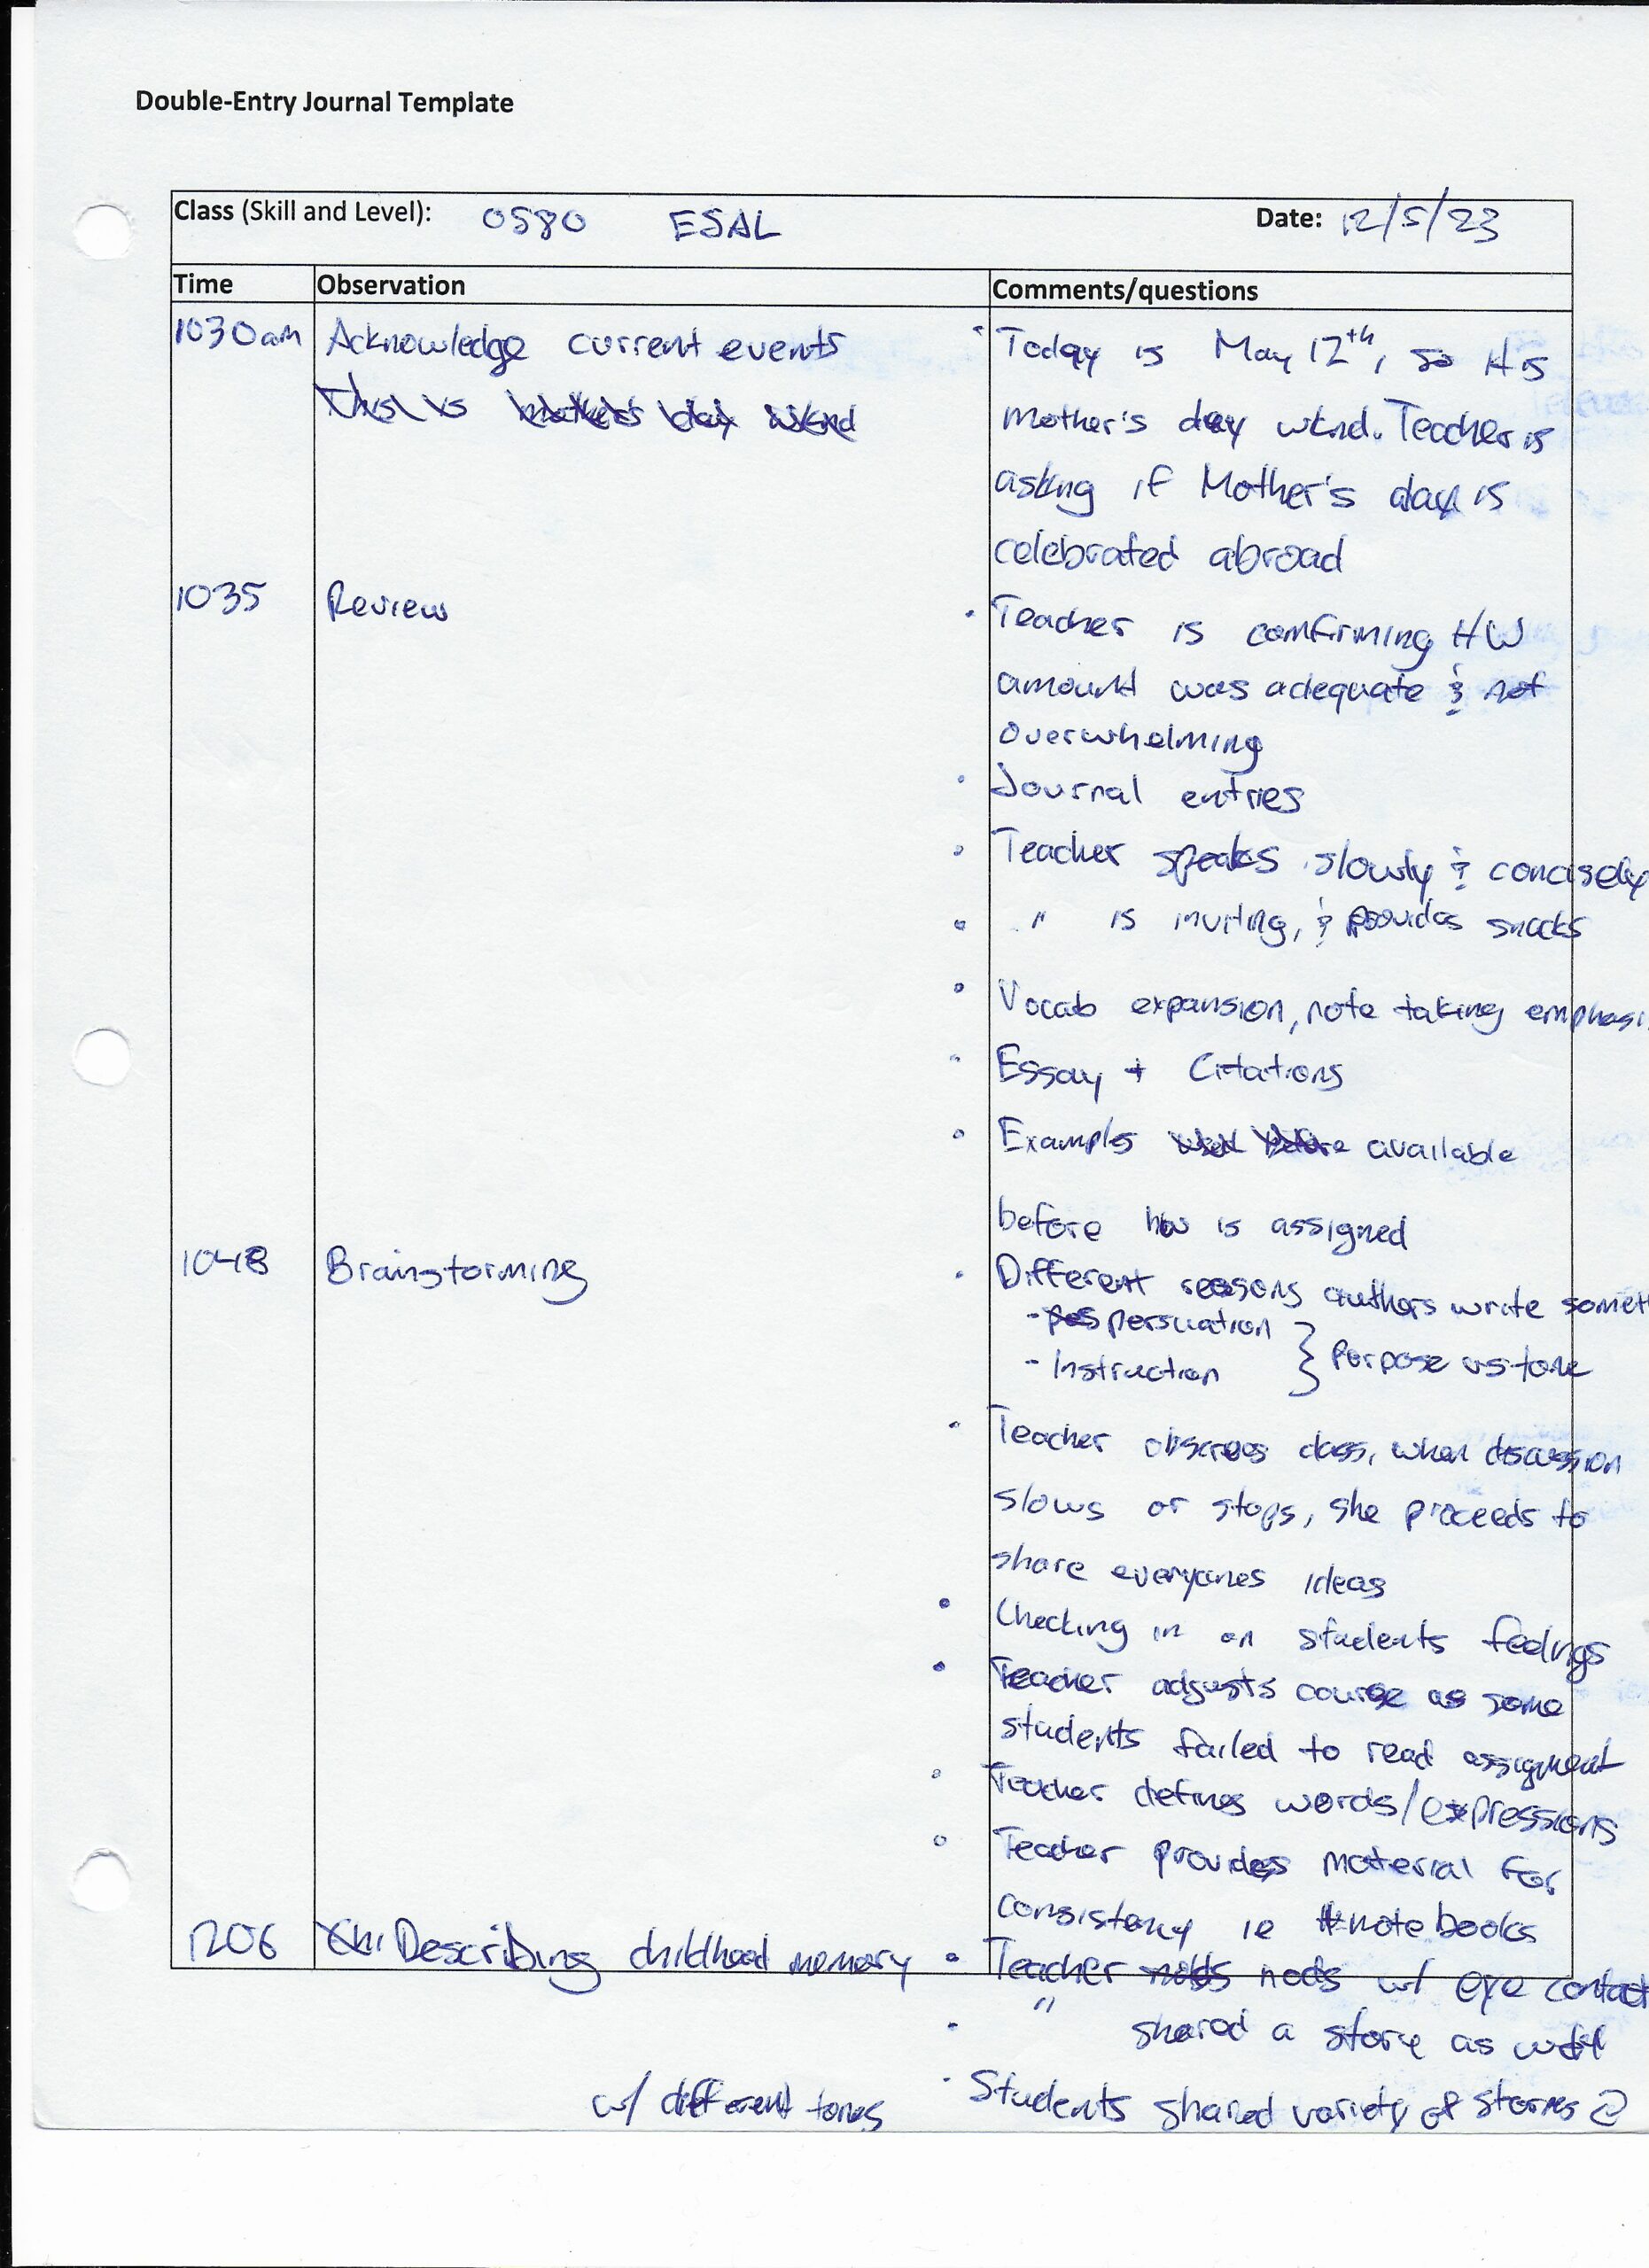 Double-Entry Journal Template
Class (Skill and Level): 0580 ESAL Date: 12/5/23
Time Observation Comments/questions
1030am Acknowledge current events • Today is May 12th, so it is
This is mother's day wknd mother's day wknd. Teacher is
asking if Mother's day is
celebrated abroad
1035 Review • Teacher is comfirming HW
amount was adequate & not
overwhelming
• Journal entries
• Teacher speaks slowly & concisely
• " is inviting, & provides snacks
• Vocab expansion, note taking emphasi
• Essay + Citations
• Examples available
before hw is assigned
1048 Brainstorming • Different reasons authors write somet
- persuation
- Instruction } Purpose vs tone
• Teacher observes class, when discussion
slows or stops, she proceeds to
share everyones ideas
• Checking in on students feelings
• Teacher adjusts course as some
students failed to read assignment
• Teacher defines words/expressions
• Teacher provides material for
consistency ie notebooks
1206 Describing childhood memory • Teacher nods w/ eye contact
• " shared a story as well
w/ different tones • Students shared variety of stories